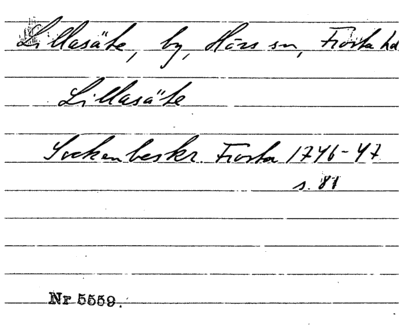 Lillasäte, by, Hörs sn, Frosta hd
Lillasäte
Sockenbeskr. Frosta 1746-47
s. 81
Nr 5559.